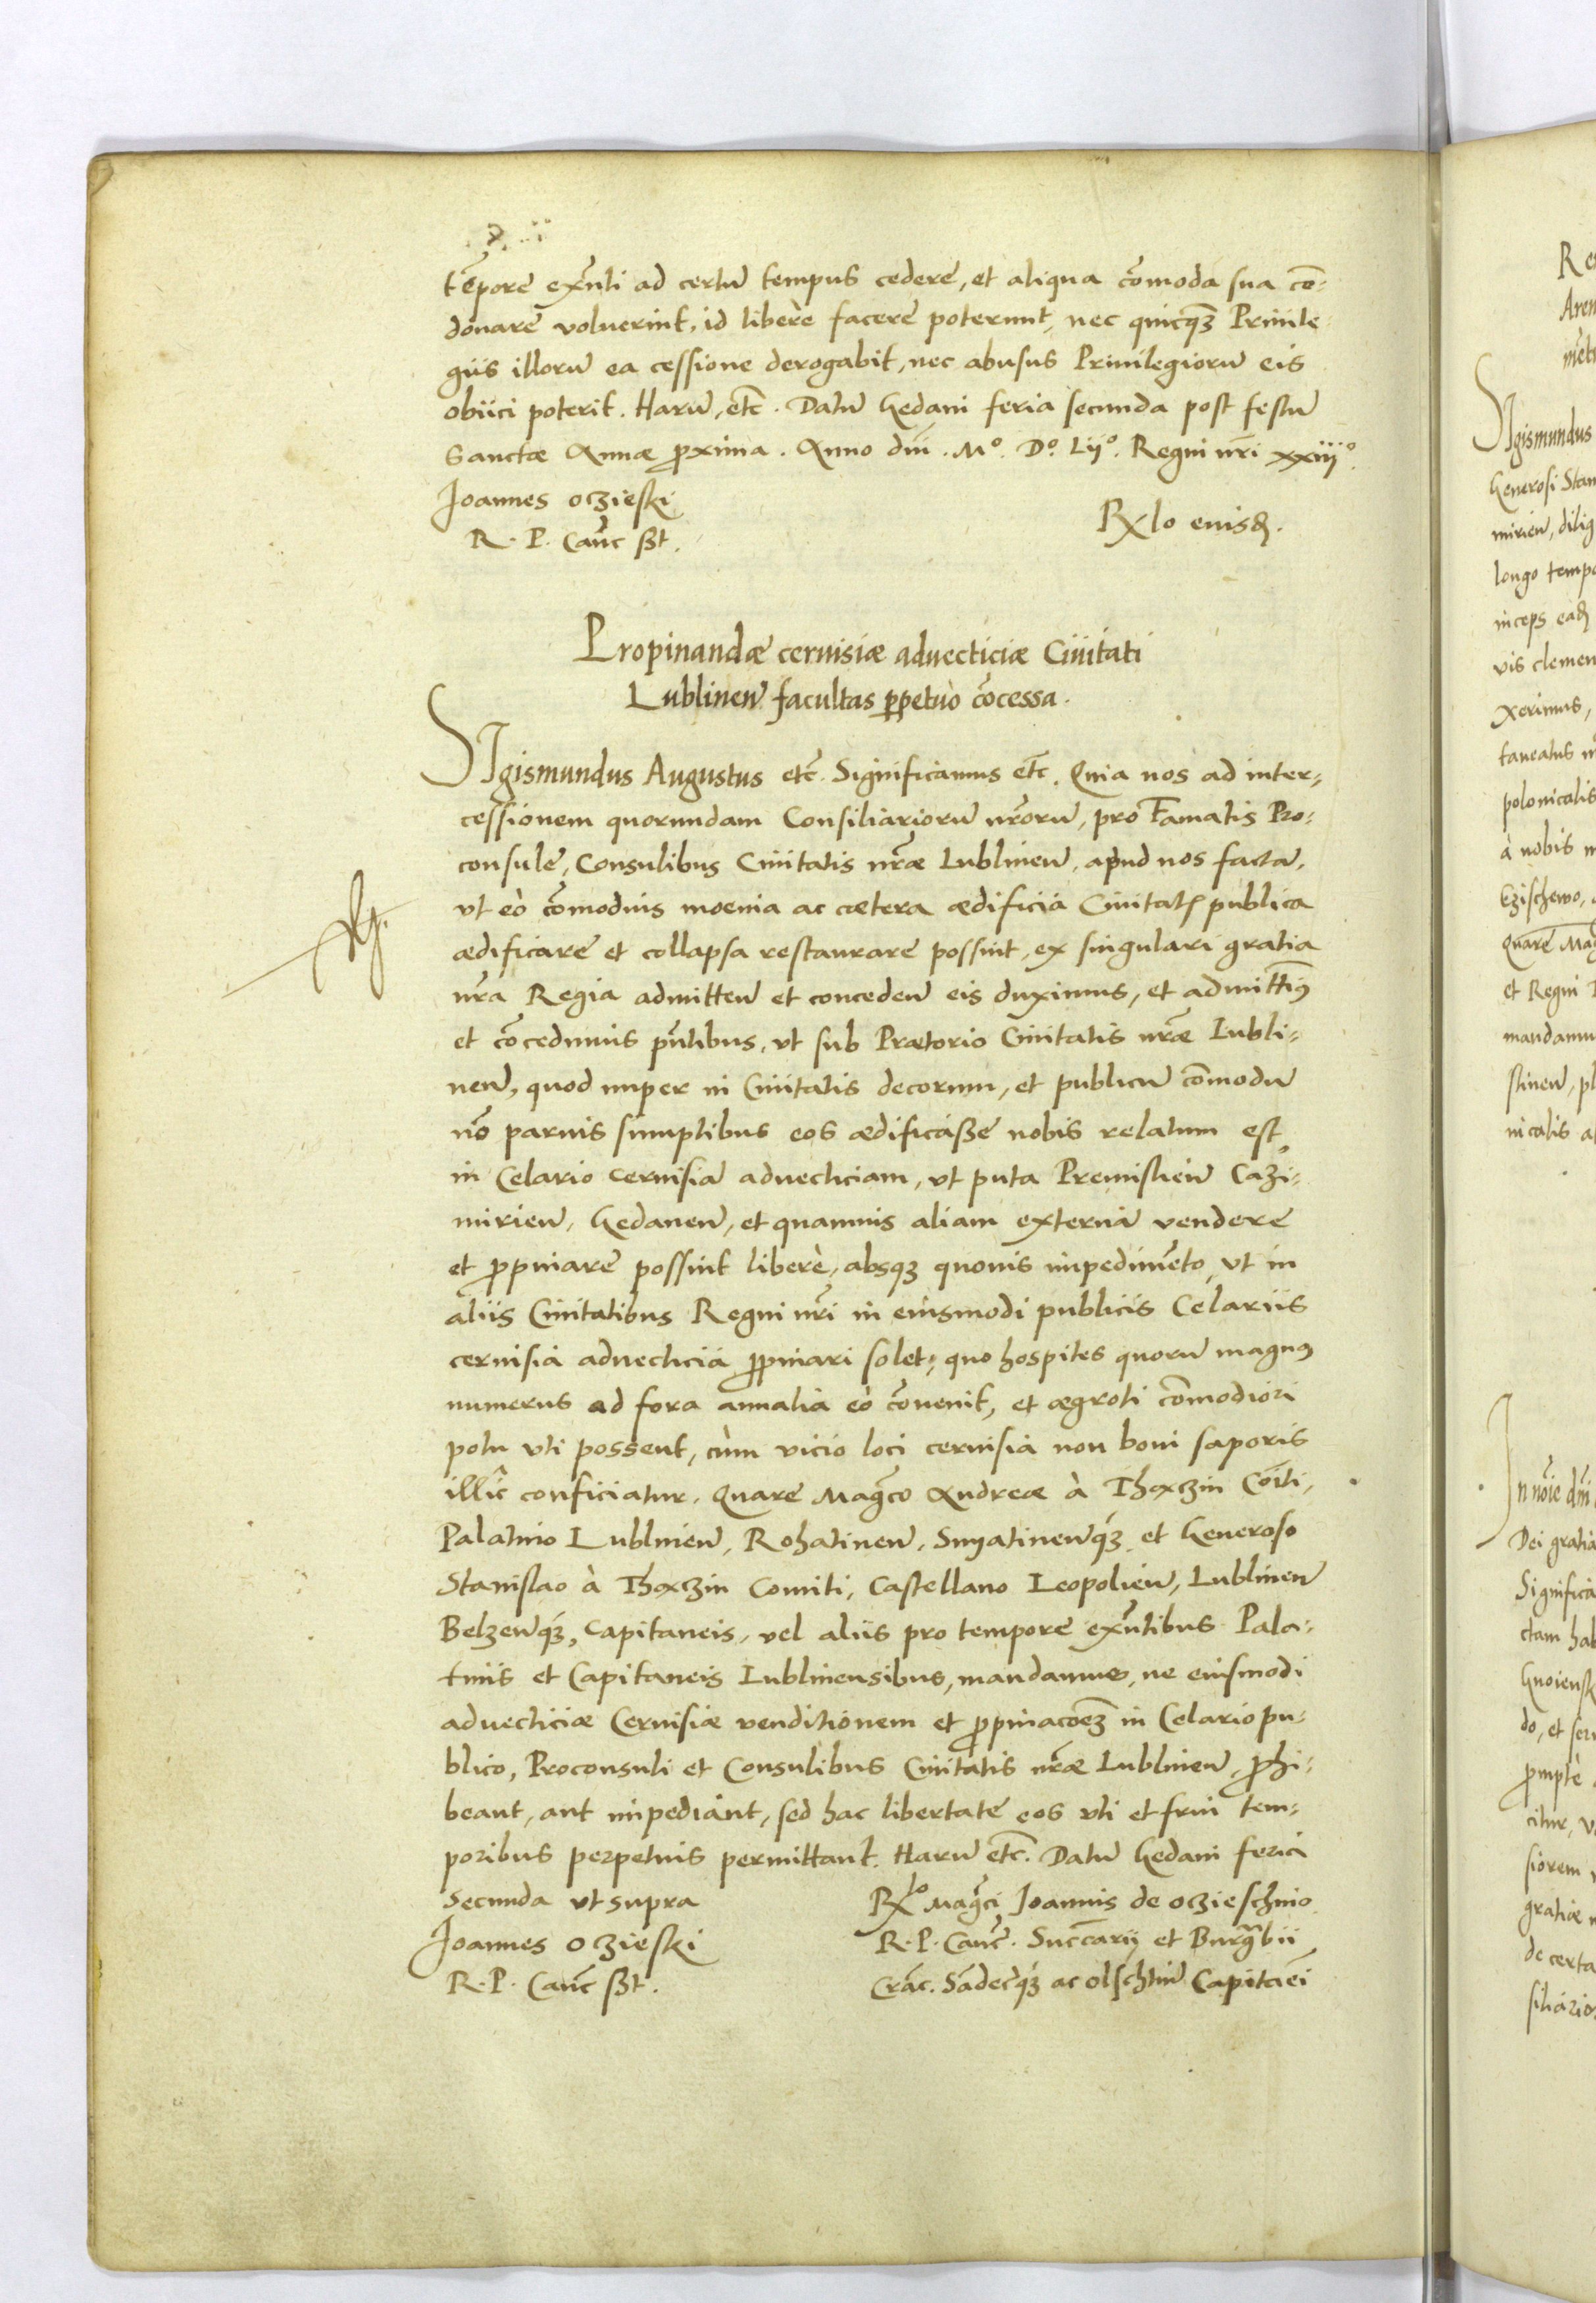 tẽpore exñti ad certũ tempus cedere, et aliqua cõmoda sua cõ-
donare voluerint, id liberè facere poterunt, nec quicqꝫ Priuile-
giis illorũ ea cessione derogabit, nec abusus Priuilegiorũ eis
obiici poterit. Harũ, etc̃. Datũ Gedani feria secunda post festũ
Sanctæ Annæ ꝓxima. Anno dñi. Mº. Dº. Lijº. Regni nr̃i xxiijº.
Joannes oczieski
R. P. Cañc sst.
Rlo eiusd̃.
Propinandæ ceruisiæ aduecticiæ Ciuitati
Lublineñ facultas ꝑpetuò cõcessa.
SIgismundus Augustus etc̃. Significamus etc̃. Quia nos ad inter-
cessionem quorundam Consiliariorũ nr̃orũ, pro Famatis Pro-
consule, Consulibus Ciuitatis nr̃æ Lublineñ, apud nos factã,
vt eò cõmodius moenia ac cætera ædificia Ciuitat̃ publica
ædificare et collapsa restaurare possint, ex singulari gratia
nr̃a Regia admitteñ et concedeñ eis duximus, et admittim9
et cõcedimus pñtibus, vt sub Prætorio Ciuitatis nr̃æ Lubli-
neñ, quod nuper in Ciuitatis decorum, et publicũ cõmodũ
nõ paruis sumptibus eos ædificasse nobis relatum est,
in Celario ceruisiã aduecticiam, vt puta Premislieñ Cazi-
mirieñ, Gedaneñ, et quamuis aliam externã vendere
et ꝓpinare possint liberè, absqꝫ quouis impedimẽto, vt in
aliis Ciuitatibus Regni nr̃i in eiusmodi publicis Celariis
ceruisia aduecticia ꝓpinari solet, quo hospites quorũ magn9
numerus ad fora annalia eò cõuenit, et ægroti cõmodiori
potu vti possent, cùm vicio loci ceruisia non boni saporis
illîc conficiatur. Quare Mag̃co Andreæ à Thexzin Coĩti,
Palatino Lublineñ, Rohatineñ, Snyatineñqꝫ, et Generoso
Stanislao à Thexzin Comiti, Castellano Leopolieñ, Lublineñ
Belzeñqꝫ, Capitaneis, vel aliis pro tempore exñtibus Pala-
tinis et Capitaneis Lublinensibus, mandamus, ne eiusmodi
aduecticiæ Ceruisiæ venditionem et ꝓpinacõeꝫ in Celario pu-
blico, Proconsuli et Consulibus Ciuitatis nr̃æ Lublineñ, ꝓhi-
beant, aut impediant, sed hac libertate eos vti et frui tem-
poribus perpetuis permittant. Harũ etc̃. Datũ Gedani feria
secunda vt supra
Rlo Mag̃ci Joannis de oczieschino
Joannes oczieski
R. P. Cañc. Succ̃arij et Burg̃bii
R. P. Cañc sst.
Crac̃. Sãdecqꝫ ac olschtiñ Capitãei
R
Aren
Sigismundus
Generosi Stan
mirieñ, dilig
longo temp
inceps ead̃
vis clemen
xerimus,
taneatus
polonicalis
à nobis
Quare Mag
et Regni
mandamu
stineñ, pl
nicalis a
In nõie dñi
Dei gratia
Significa
ctam hab
Gnoiensk
do, et ser
ꝓmptè
citur, v
siorem
gratiæ
de certa
siliario